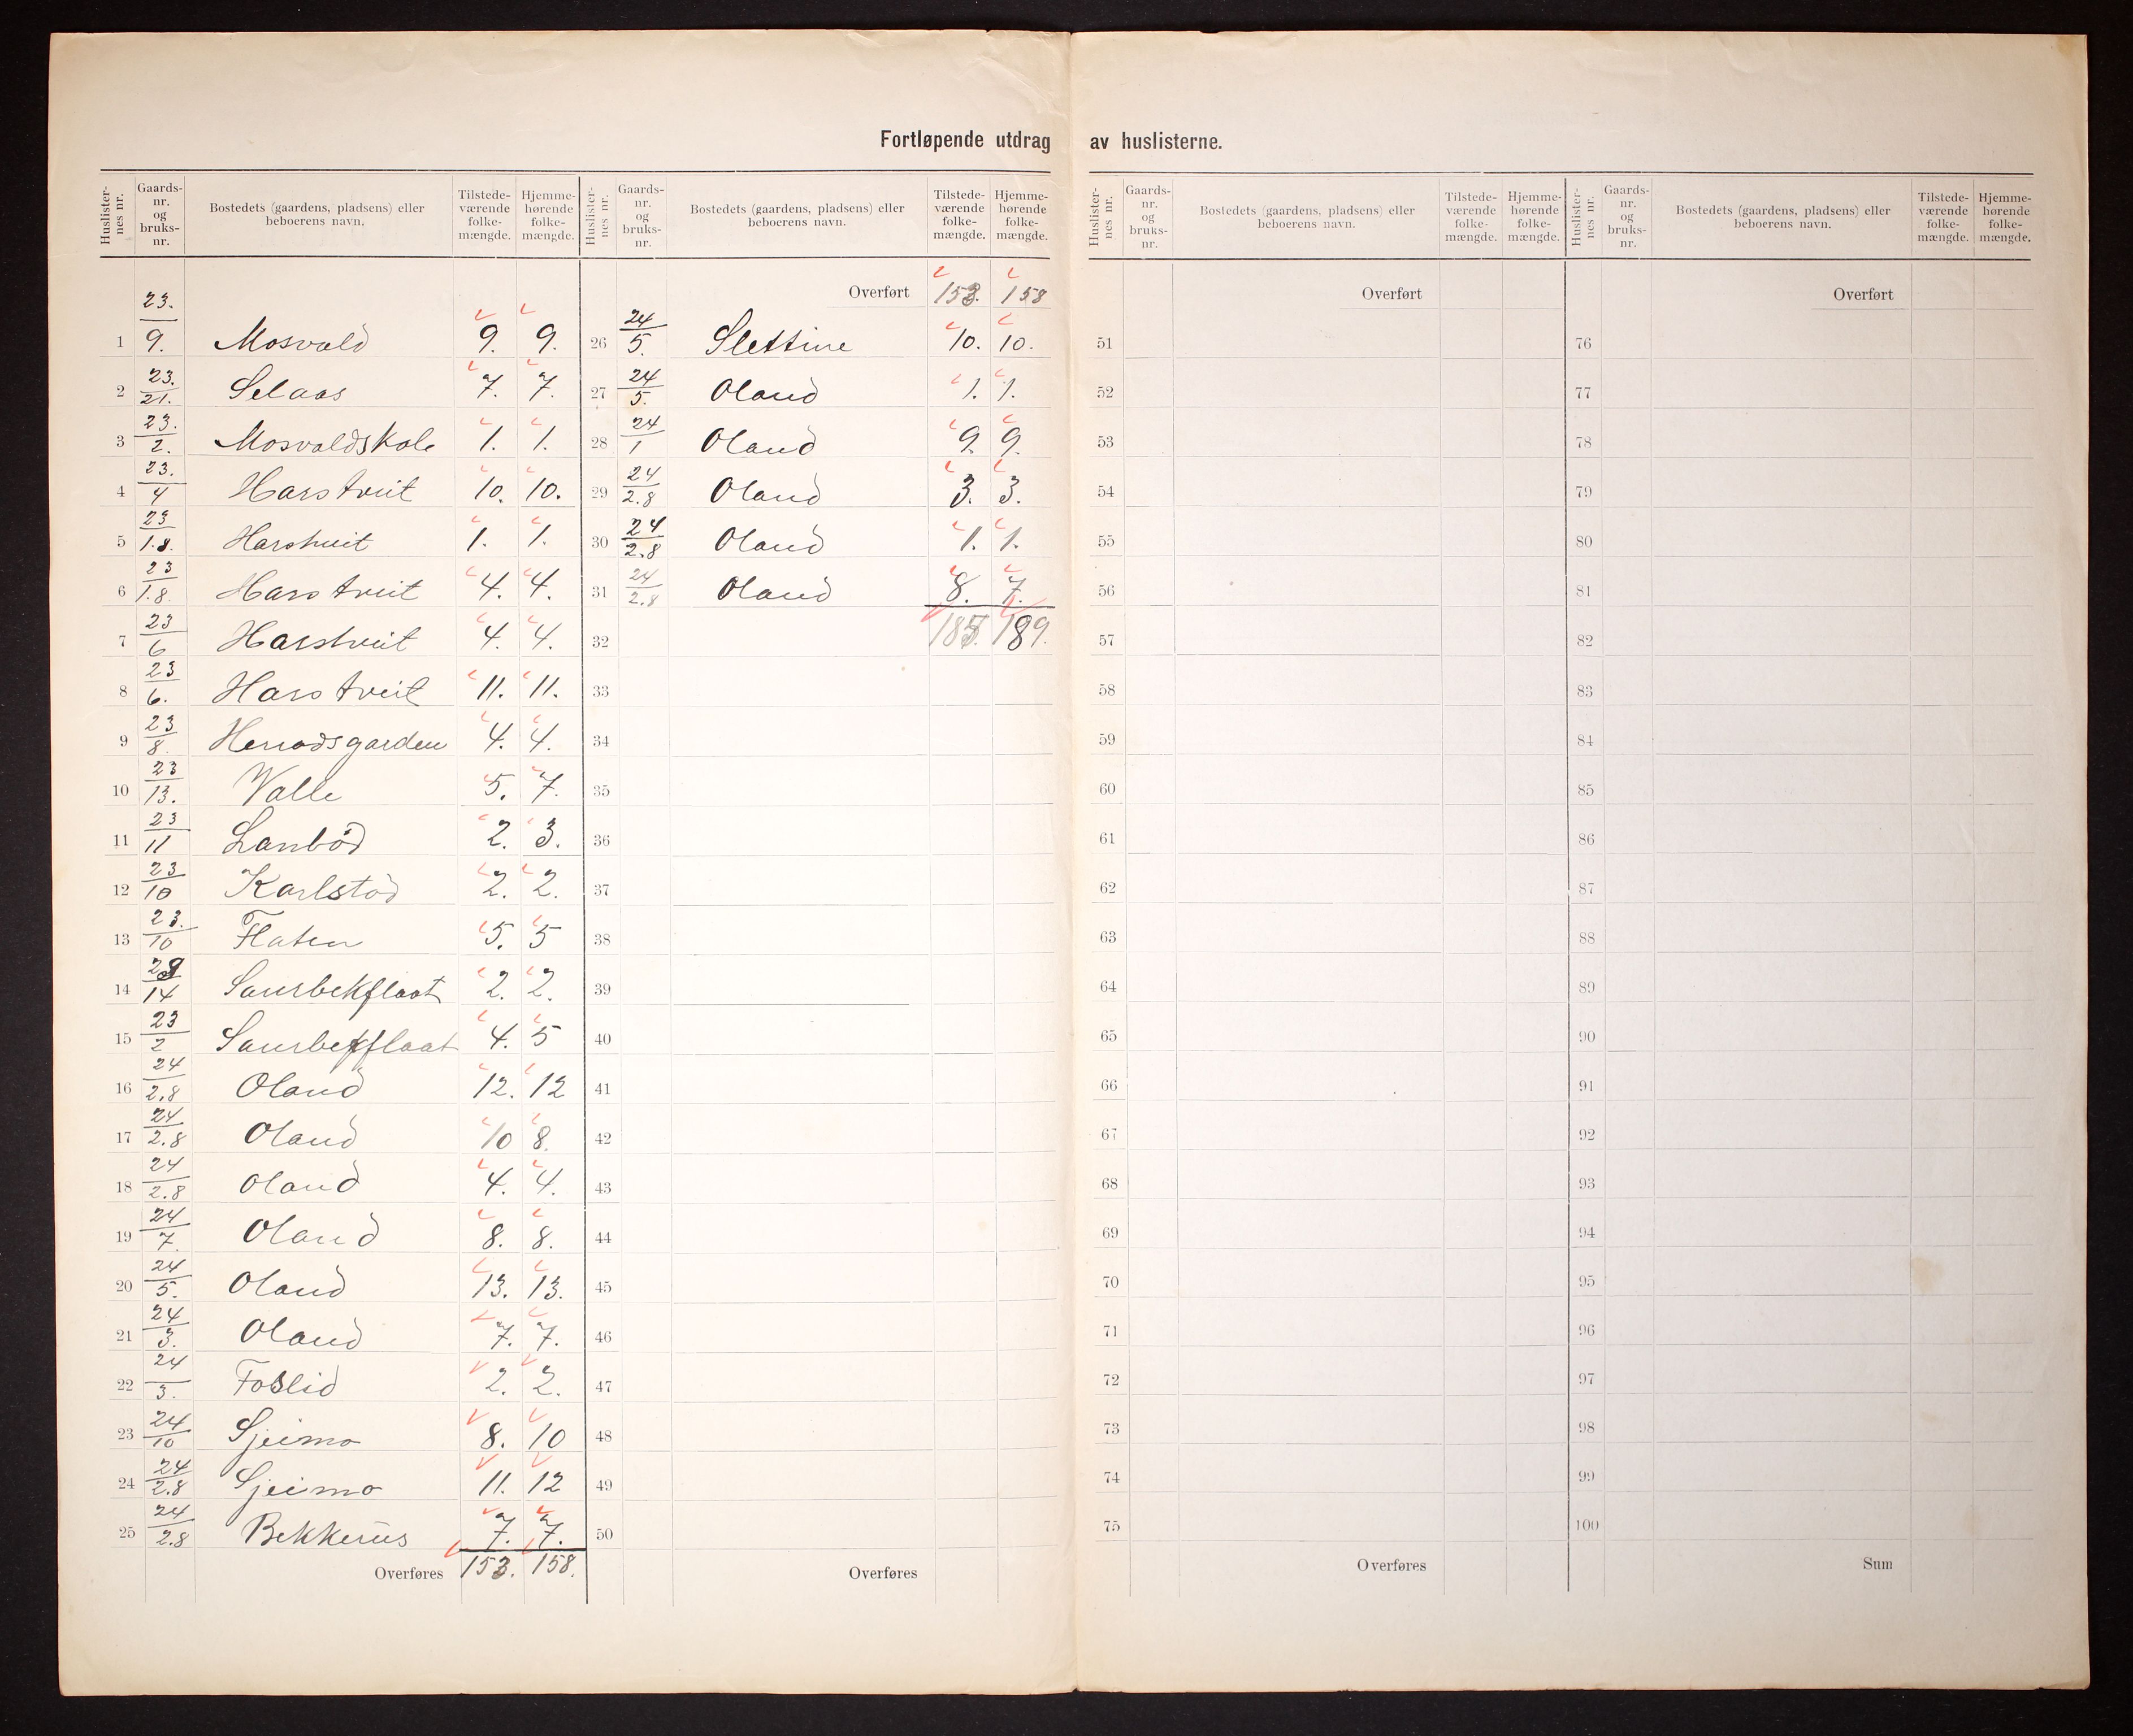 Fortløpende utdrag av huslisterne.
Huslisternes nr. Gaards-nr. og bruks-nr. Bostedets (gaardens, pladsens) eller beboerens navn. Tilstede-værende folke-mængde. Hjemme-hørende folke-mængde.
1 23./9. Mosvald 9. 9.
2 23./21. Selaas 7. 7.
3 23./2. Mosvaldskole 1. 1.
4 23./4 Harstveit 10. 10.
5 23/1.8. Harstveit 1. 1.
6 23/1.8. Harstveit 4. 4.
7 23/6 Harstveit 4. 4.
8 23/6. Harstveit 11. 11.
9 23/8. 4. 4.
10 23/13. Valle 5. 7.
11 23/11 Lanbød 2. 3.
12 23/10 Karlstød 2. 2.
13 23./10 Flaten 5. 5
14 23/14 Saursbekflaat 2. 2.
15 23/2 Saursbekflaat 4. 5
16 24/2.8 Oland 12. 12
17 24/2.8 Oland 10 8.
18 24/2.8 Oland 4. 4.
19 24/7. Oland 8. 8.
20 24/5. Oland 13. 13.
21 24/3. Oland 7. 7.
22 24/3. Foslid 2. 2.
23 24/10 Sjeimo 8. 10
24 24/2.8 Sjeimo 11. 12
25 24/2.8 Bekkerus 7. 7.
Overføres 153. 158.
Huslisternes nr. Gaards-nr. og bruks-nr. Bostedets (gaardens, pladsens) eller beboerens navn. Tilstede-værende folke-mængde. Hjemme-hørende folke-mængde.
Overført 153. 158
26 24/5. Slettine 10. 10.
27 24/5. Oland 1. 1.
28 24/1 Oland 9. 9.
29 24/2.8 Oland 3. 3.
30 24/2.8 Oland 1. 1.
31 24/2.8 Oland 8. 7.
32 185. 189.
33
34
35
36
37
38
39
40
41
42
43
44
45
46
47
48
49
50
Overføres
Huslisternes nr. Gaards-nr. og bruks-nr. Bostedets (gaardens, pladsens) eller beboerens navn. Tilstede-værende folke-mængde. Hjemme-hørende folke-mængde.
Overført
51
52
53
54
55
56
57
58
59
60
61
62
63
64
65
66
67
68
69
70
71
72
73
74
75
Overføres
Huslisternes nr. Gaards-nr. og bruks-nr. Bostedets (gaardens, pladsens) eller beboerens navn. Tilstede-værende folke-mængde. Hjemme-hørende folke-mængde.
Overført
76
77
78
79
80
81
82
83
84
85
86
87
88
89
90
91
92
93
94
95
96
97
98
99
100
Sum